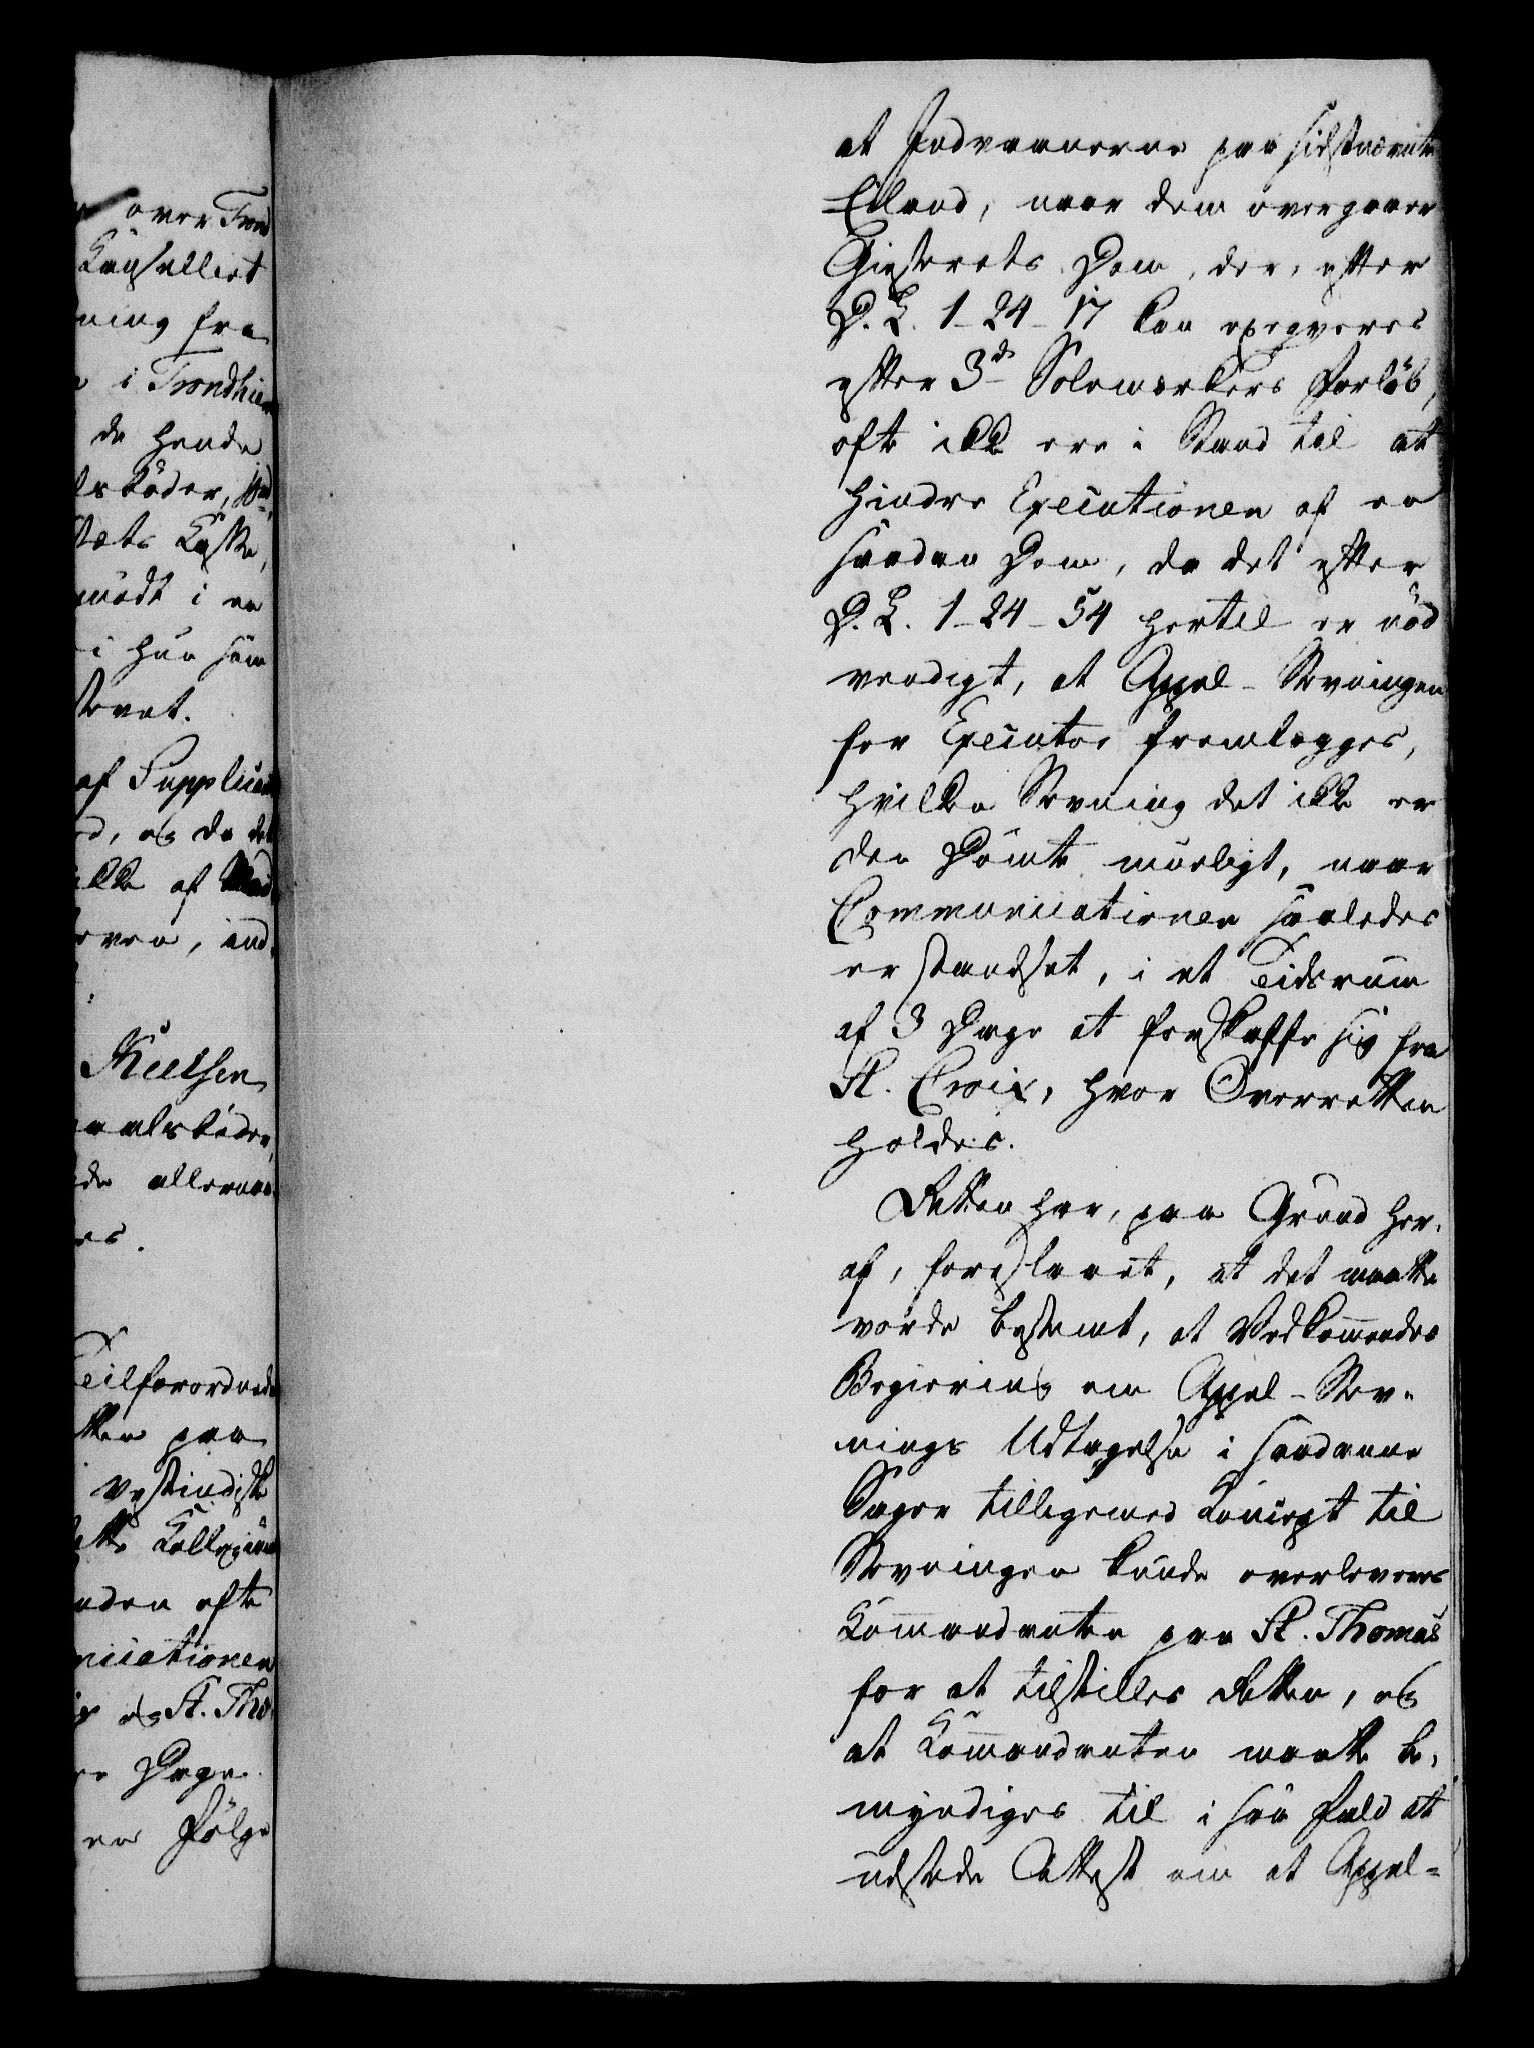 over Trond
Kancelliet
ning fra
i Trondhiem
da hende
lsbøder,
tets Kasse,
mødt i en
i hun som
stevnt.
af Supplican
d, og da det
ikke af
, ind
Nielsen
aalsbøder,
de allernaa
es.
Tilforordnede
tten paa
vestindiske
ette Kollegium
nden ofte
nicationen
og St. Tho
re Dage
en Følge
at Indvaanerne paa sidstnævnte
Eiland, naar dem overgaaer
Giesterets Dom, der, efter
D. L. 1-24-17 kan exeqveres
efter 3de Solemærkers Forløb,
ofte ikke ere i Stand til at
hindre Executionen af en
saadan Dom, da det efter
D. L. 1-24-54 hertil er nød
vendigt, at Appel-Stevningen
for Executor fremlægges,
hvilken Stevning det ikke er
den Dømte mueligt, naar
Communicationen saaledes
er standset, i et Tidsrum
af 3 Dage at forskaffe sig fra
St. Croix, hvor Overretten
holdes.
Retten har, paa Grund her-
af, foreslaaet, at det maatte
vorde bestemt, at Vedkommendes
Begiering om Appel-Stev-
nings Udtagelse i saadanne
Sager tilligemed Koncept til
Stevningen kunde overleveres
Kommandanten paa St. Thomas
for at tilstilles Retten, og
at Kommandanten maatte be-
myndiges til i saa Fald at
udstede Attest om at Appel-